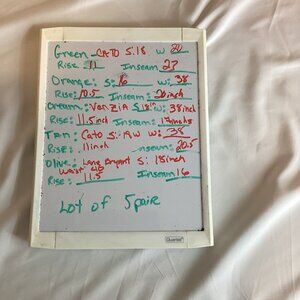 Green CATO S:18 W: 20
Rise 11 Inseam 27
Orange: S: 16 W: 38
Rise: 10.5 Inseam: 20inch
Cream: VanZia S:18 W: 38inch
Rise: 11.5inch Inseam:
Tan: Cato S: 19W W: 38
Rise: 11inch Inseam: 20.5
Olive: Lane Bryant S: 18inch
Waist 40
Rise: 11.5 Inseam 16
Lot of 5pair
Quartet